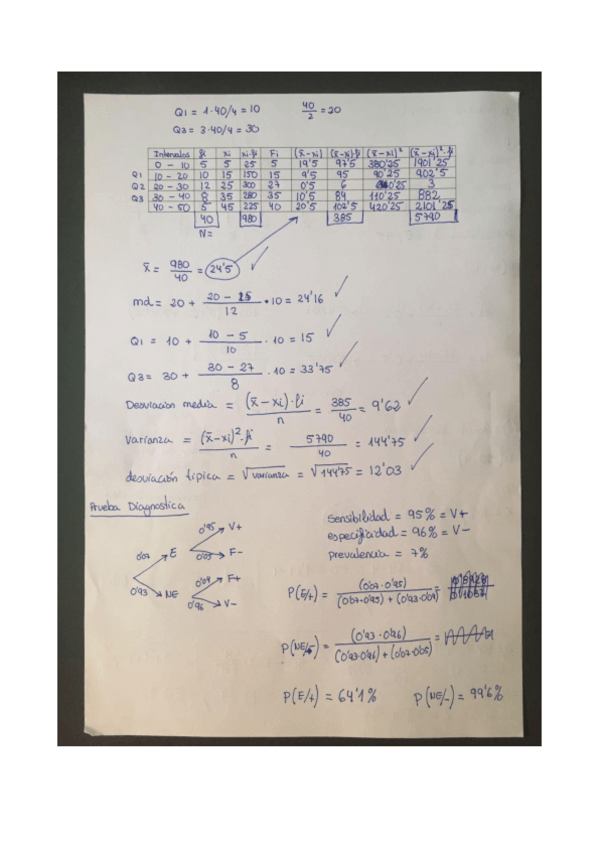 Q1 = 1·40/4 = 10 40/2 = 20
Q3 = 3·40/4 = 30
Intervalos fi xi xi·fi Fi (x̄-xi) (x̄-xi)·fi (x̄-xi)² (x̄-xi)²·fi
0 - 10 5 5 25 5 19'5 97'5 380'25 1901'25
Q1 10 - 20 10 15 150 15 9'5 95 90'25 902'5
Q2 20 - 30 12 25 300 27 0'5 6 0'25 3
Q3 30 - 40 8 35 280 35 10'5 84 110'25 882
40 - 50 5 45 225 40 20'5 102'5 420'25 2101'25
40 980 385 5790
N=
x̄ = 980/40 = 24'5
md = 20 + (20 - 15)/12 · 10 = 24'16
Q1 = 10 + (10 - 5)/10 · 10 = 15
Q3 = 30 + (30 - 27)/8 · 10 = 33'75
Desviación media = (x̄-xi)·fi/n = 385/40 = 9'62
Varianza = (x̄-xi)²·fi/n = 5790/40 = 144'75
desviación típica = √varianza = √144'75 = 12'03
Prueba Diagnostica
sensibilidad = 95% = V+
especificidad = 96% = V-
prevalencia = 7%
0'07 E 0'95 V+
0'05 F-
0'93 NE 0'04 F+
0'96 V-
P(E/+) = (0'07·0'95)/((0'07·0'95) + (0'93·0'04)) =
P(NE/-) = (0'93·0'96)/((0'93·0'96) + (0'07·0'05)) =
P(E/+) = 64'1% P(NE/-) = 99'6%